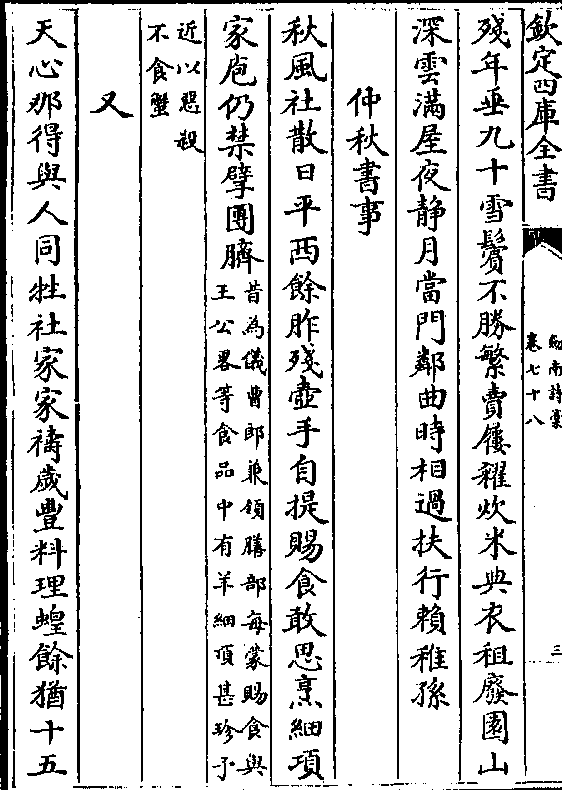 欽定四庫全書
劍南詩稾
卷七十八
三
殘年垂九十雪鬢不勝繁賣屨糴炊米典衣租廢園山
深雲滿屋夜静月當門鄰曲時相過扶行賴稚孫
仲秋書事
秋風社散日平西餘胙殘壺手自提賜食敢思烹細項
家庖仍禁擘團臍
昔為儀曹郎兼領膳部每蒙賜食與
王公畧等食品中有羊細項甚珍予
近以惡殺
不食蟹
又
天心那得與人同牲社家家禱歲豐料理蝗餘猶十五